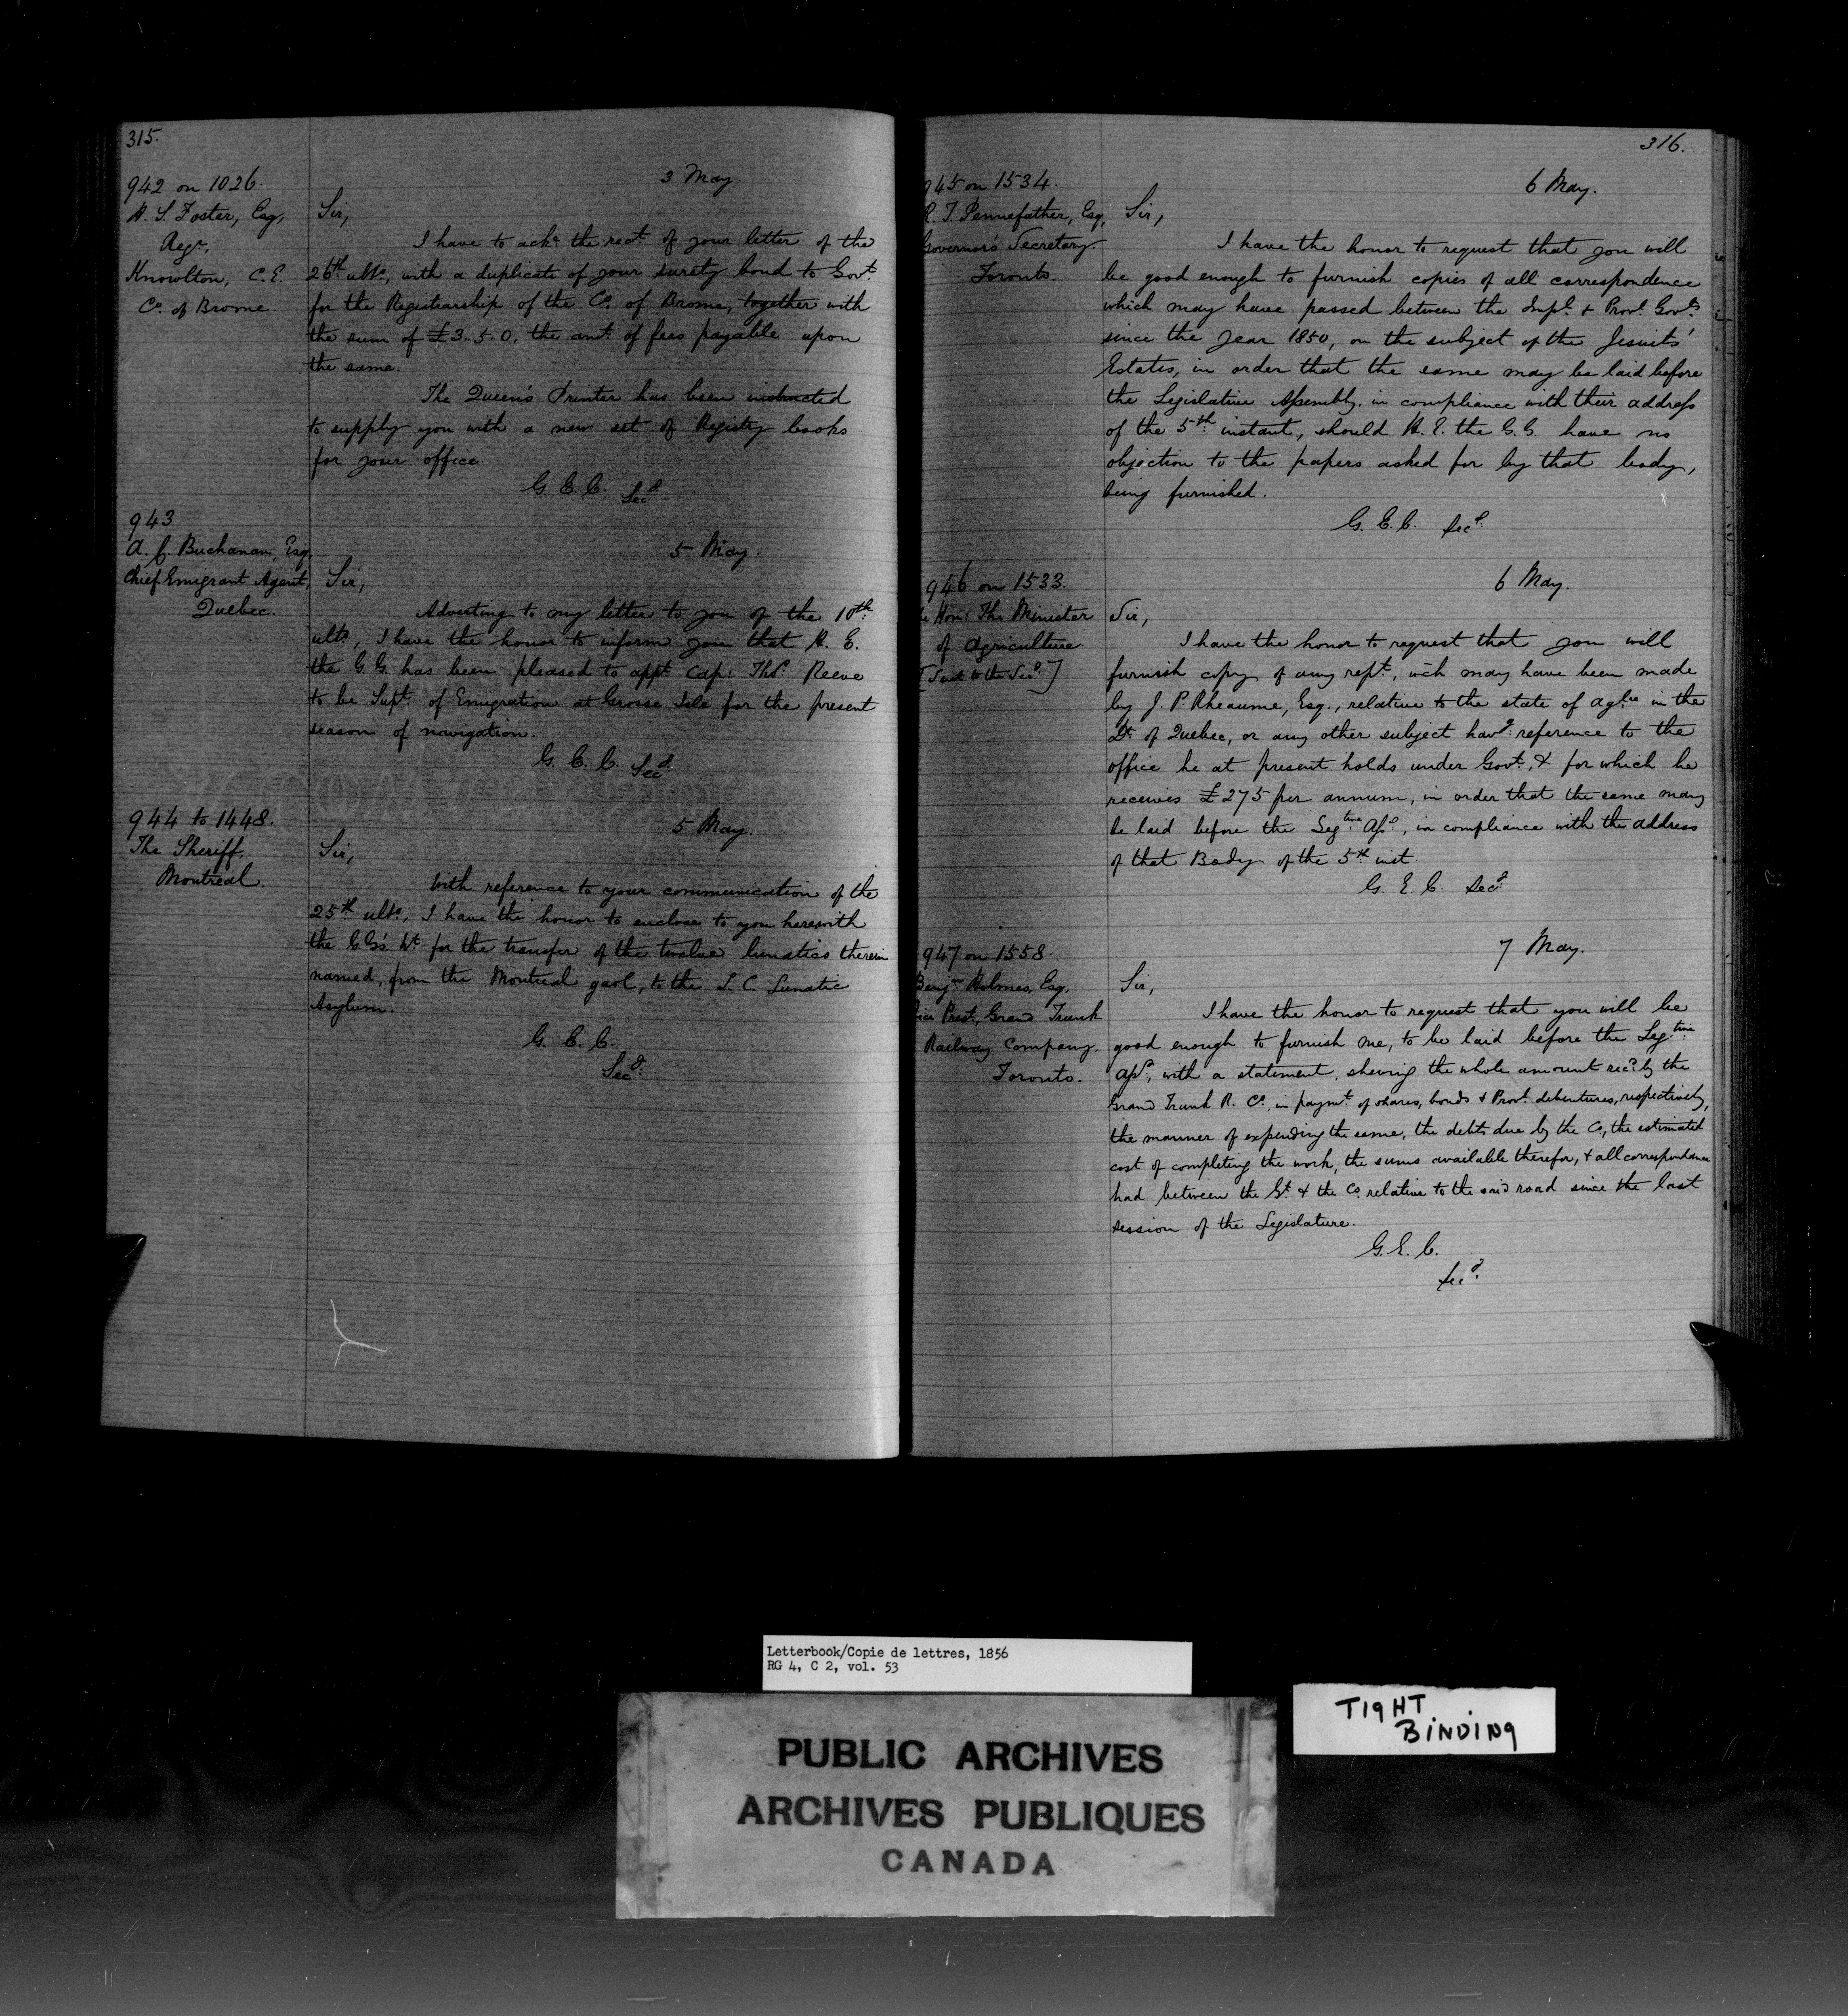 315.
942 on 1026.
H. S. Foster, Esq,
Regr.,
Knowlton, C.E.
Co. of Brome.
3 May.
Sir,
I have to ackn. the rect. of your letter of the
26th ulto., with a duplicate of your surety bond to Govt.
for the Registrarship of the Co. of Brome, together with
the sum of £3..5..0, the amt. of fees payable upon
the same.
The Queen's Printer has been instructed
to supply you with a new set of Registry books
for your office.
G. E. C. Secy.
943
A. C. Buchanan, Esq,
Chief Emigrant Agent,
Quebec.
5 May.
Sir,
Adverting to my letter to you of the 10th.
ulto., I have the honor to inform you that H. E.
the G.G. has been pleased to appt. Cap: Thos. Reeve
to be Supt. of Emigration at Grosse Isle for the present
season of navigation.
G. E. C. Secy.
944 to 1448.
The Sheriff,
Montreal.
5 May.
Sir,
With reference to your communication of the
25th ulto., I have the honor to enclose to you herewith
the G.G's. Wt. for the transfer of the twelve lunatics therein
named, from the Montreal gaol, to the L. C. Lunatic
Asylum.
G. E. C.
Secy.
316.
945 on 1534.
R. T. Pennefather, Esq,
Governor's Secretary.
Toronto.
6 May.
Sir,
I have the honor to request that you will
be good enough to furnish copies of all correspondence
which may have passed between the Impl. & Provl. Govts.
since the year 1850, on the subject of the Jesuits'
Estates, in order that the same may be laid before
the Legislative Assembly, in compliance with their address
of the 5th. instant, should H. E. the G.G. have no
objection to the papers asked for by that body,
being furnished.
G. E. C. Secy.
946 on 1533.
Hon: The Minister
of Agriculture
[Sent to the Secy.]
6 May.
Sir,
I have the honor to request that you will
furnish copy of any rept., wch may have been made
by J. P. Rheaume, Esq., relative to the state of agre. in the
Dt. of Quebec, or any other subject havg. reference to the
office he at present holds under Govt., & for which he
receives £275 per annum, in order that the same may
be laid before the Legtive. Assy., in compliance with the address
of that Body of the 5th. inst.
G. E. C. Secy.
947 on 1558.
Benjn. Holmes, Esq,
Vice Prest., Grand Trunk
Railway Company.
Toronto.
7 May.
Sir,
I have the honor to request that you will be
good enough to furnish me, to be laid before the Legtive.
Assy., with a statement, shewing the whole amount recd. by the
Grand Trunk R. Co., in paymt. of shares, bonds & Provl. debentures, respectively,
the manner of expending the same, the debts due by the Co., the estimated
cost of completing the work, the sums available therefor, & all correspondence
had between the Gt. & the Co. relative to the said road since the last
session of the Legislature.
G. E. C.
Secy.
Letterbook/Copie de lettres, 1856
RG 4, C 2, vol. 53
TIGHT
BINDING
PUBLIC ARCHIVES
ARCHIVES PUBLIQUES
CANADA